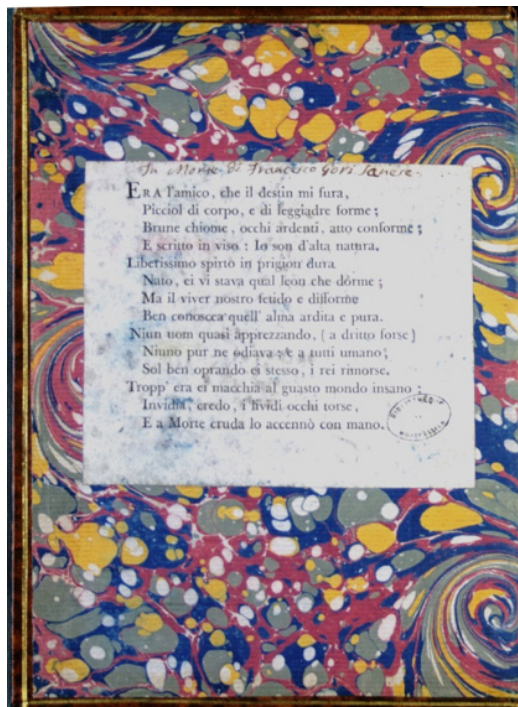 In Morte di Francesco Gori Sanese.
ERA l'amico, che il destin mi fura,
Picciol di corpo, e di leggiadre forme;
Brune chiome, occhi ardenti, atto conforme;
E scritto in viso: Io son d'alta natura.
Liberissimo spirto in prigion dura
Nato, ei vi stava qual leon che dorme;
Ma il viver nostro fetido e difforme
Ben conoscea quell' alma ardita e pura.
Niun uom quasi apprezzando, (a dritto forse)
Niuno pur ne odiava: e a tutti umano,
Sol ben oprando ei stesso, i rei rimorse.
Tropp' era ei macchia al guasto mondo insano;
Invidia, credo, i lividi occhi torse,
E a Morte cruda lo accennò con mano.